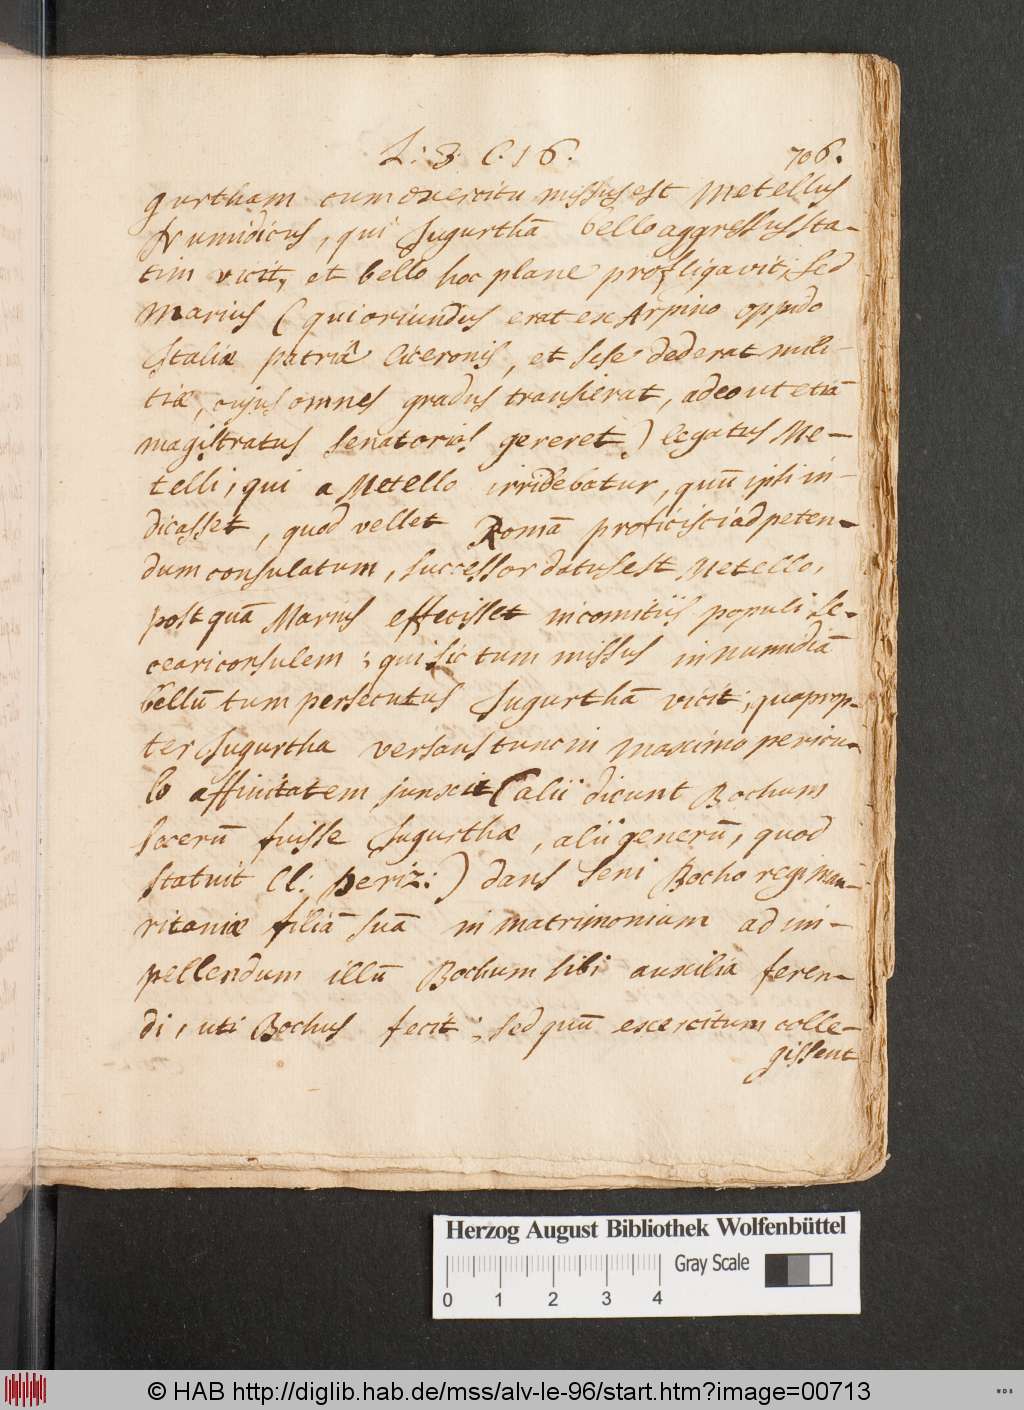 L: 3. C. 16. 706.
gurtham cum exercitu missus est Metellus
Numidicus, qui Jugurthā bello aggressus sta-
tim vicit, et bello hoc plane profligavit, sed
Marius (qui oriundus erat ex Arpino oppido
Italiæ patriâ Ciceronis, et sese dederat mili-
tiæ, cujus omnes gradus transierat, adeo ut etiā
magistratus senatorios gereret) legatus Me-
telli, qui a Metello irridebatur, quū ipsi in-
dicasset, quod vellet Romā proficisci ad peten-
dum consulatum, successor datus est Metello,
postquā Marius effecisset in comitiis populi se
creari consulem; qui sic tum missus in numidiā
bellū tum persecutus Jugurthā vicit; quaprop-
ter Jugurtha versans tunc in maximo pericu-
lo affinitatem junxit (alii dicunt Bochum
socerū fuisse Jugurthæ, alii generū, quod
statuit Cl: Periz:) dans seni Bocho regi Mau-
ritaniæ filiā suā in matrimonium ad im-
pellendum illū Bochum sibi auxilia feren-
di, uti Bochus fecit; sed quū exercitum colle-
gissent
Herzog August Bibliothek Wolfenbüttel
Gray Scale
0 1 2 3 4
© HAB http://diglib.hab.de/mss/alv-le-96/start.htm?image=00713